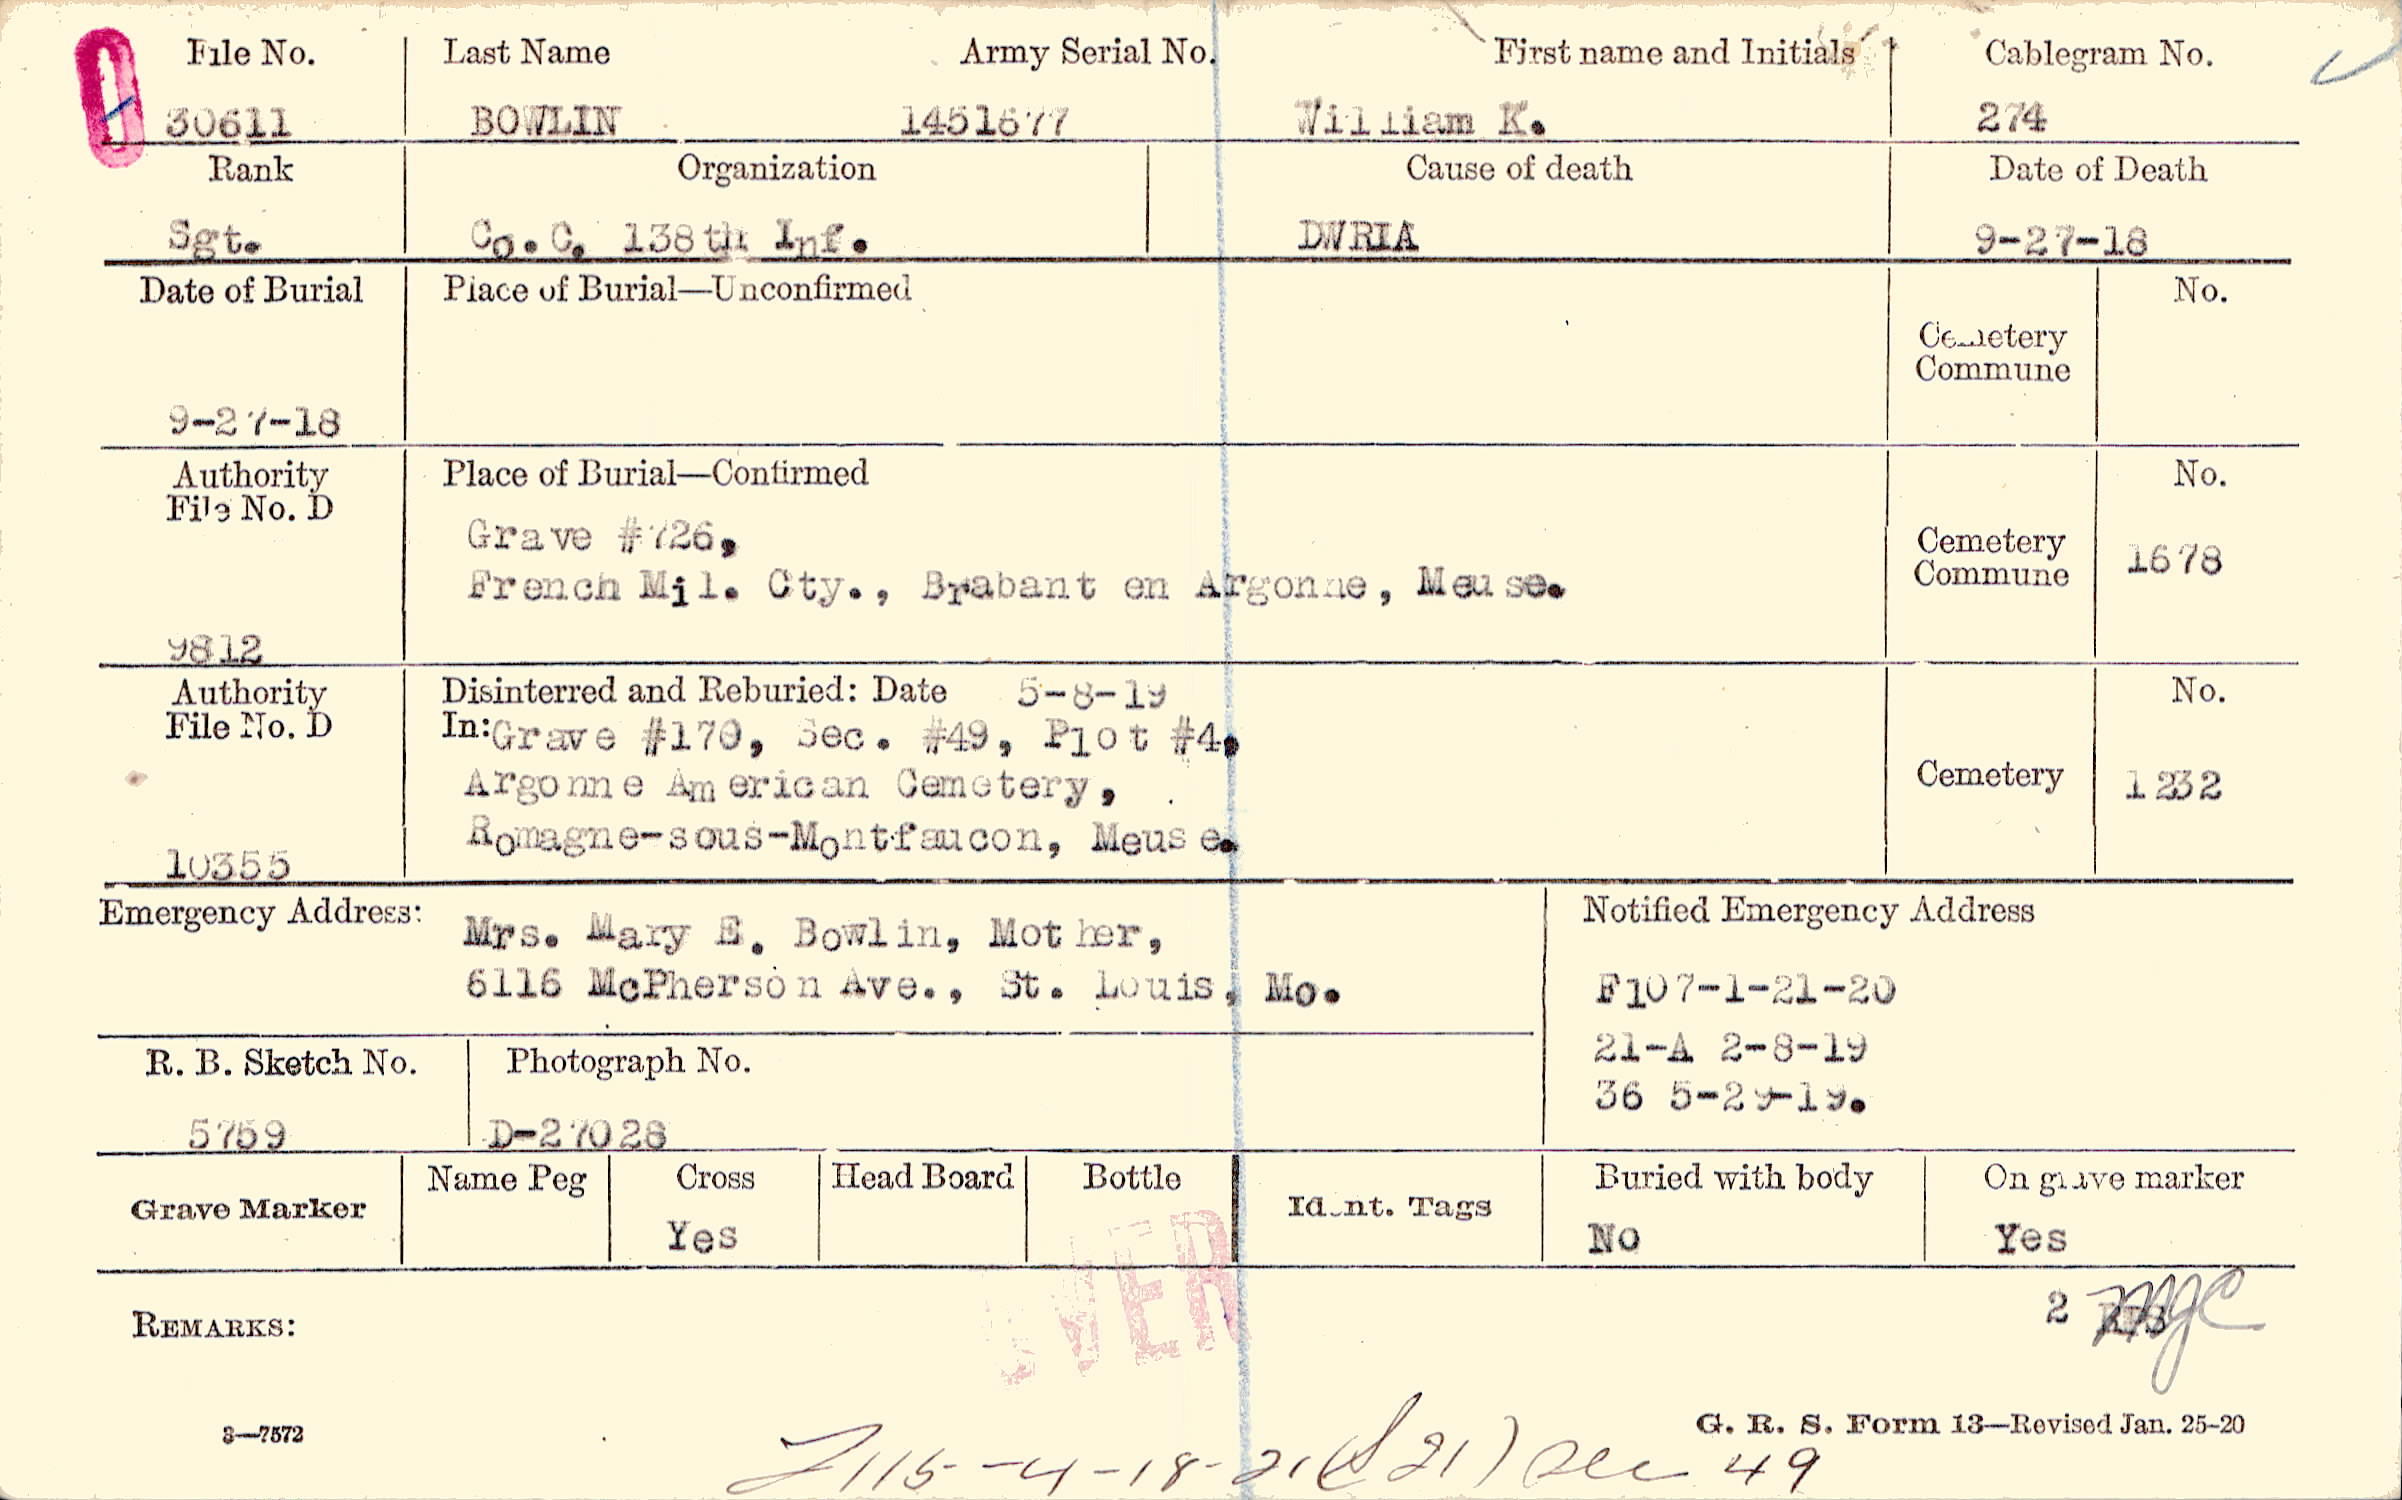 File No. Last Name Army Serial No. First name and Initials Cablegram No.
30611 BOWLIN 1451677 William K. 274
Rank Organization Cause of death Date of Death
Sgt. Co. C. 138th Inf. DWRIA 9-27-18
Date of Burial Place of Burial—Unconfirmed No.
Cemetery
Commune
9-27-18
Authority Place of Burial—Confirmed No.
File No. D
Grave #726,
Cemetery
French Mil. Cty., Brabant en Argonne, Meuse. Commune 1678
9812
Authority Disinterred and Reburied: Date 5-8-19 No.
File No. D In: Grave #170, Sec. #49, Plot #4,
Argonne American Cemetery, Cemetery 1232
Romagne-sous-Montfaucon, Meuse.
10355
Emergency Address: Notified Emergency Address
Mrs. Mary E. Bowlin, Mother,
6116 McPherson Ave., St. Louis, Mo. F107-1-21-20
R. B. Sketch No. Photograph No. 21-A 2-8-19
36 5-29-19.
5759 D-27028
Grave Marker Name Peg Cross Head Board Bottle Ident. Tags Buried with body On grave marker
Yes No Yes
OVER
REMARKS: 2
3—7572 G. R. S. Form 13—Revised Jan. 25-20
115-4-18-21 (S 21) Sec 49